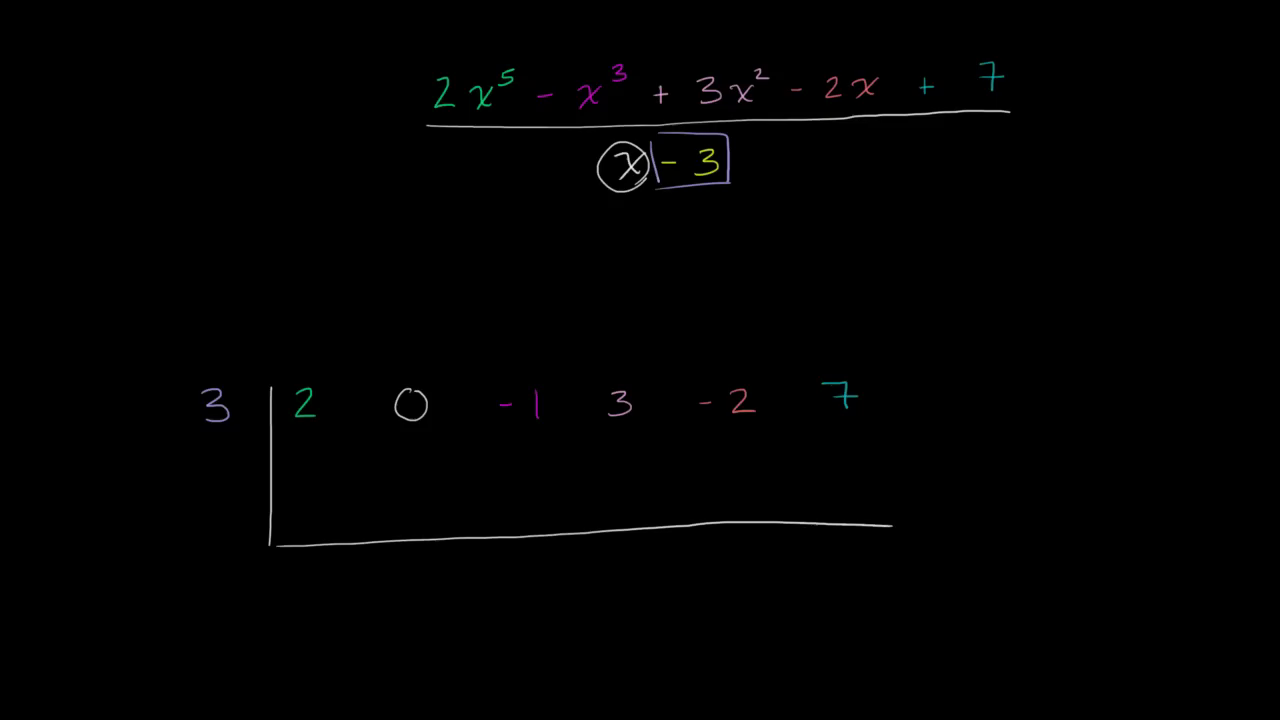 2x⁵ - x³ + 3x² - 2x + 7
x - 3
3 2 0 -1 3 -2 7